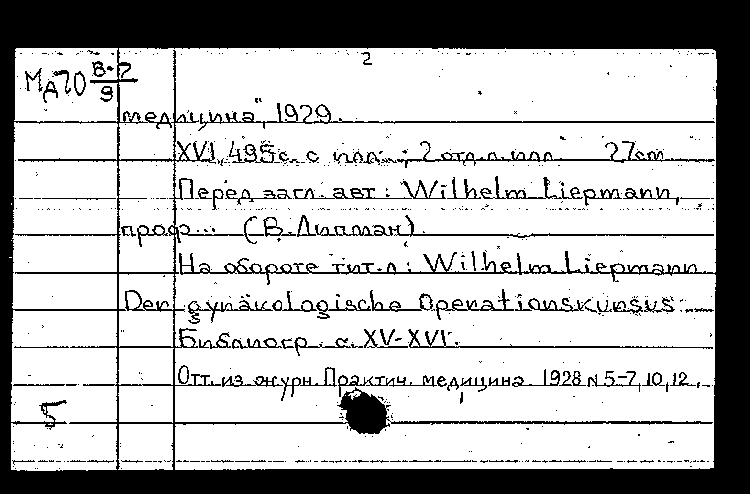 2
Мд70 В-7/9
медицина", 1929.
XVI, 495с. с илл.; 2 отд.л.илл. 27cm
Перед загл. авт: Wilhelm Liepmann,
проф... (В.Липман).
На обороте тит.л: Wilhelm Liepmann
Der gynäkologische Operationskursus
Библиогр. с. XV-XVI.
Отт. из журн. Практич. медицина. 1928 N 5-7, 10, 12,
5